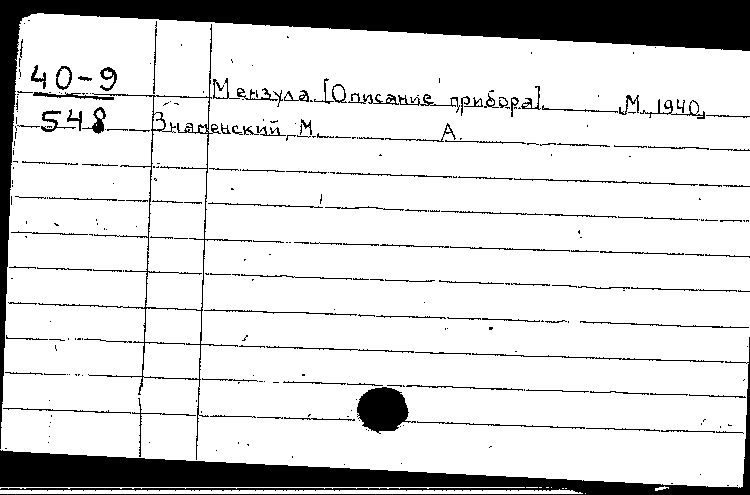 40-9
548
Мензула [Описание прибора]. М., 1940,
Знаменский, М. А.